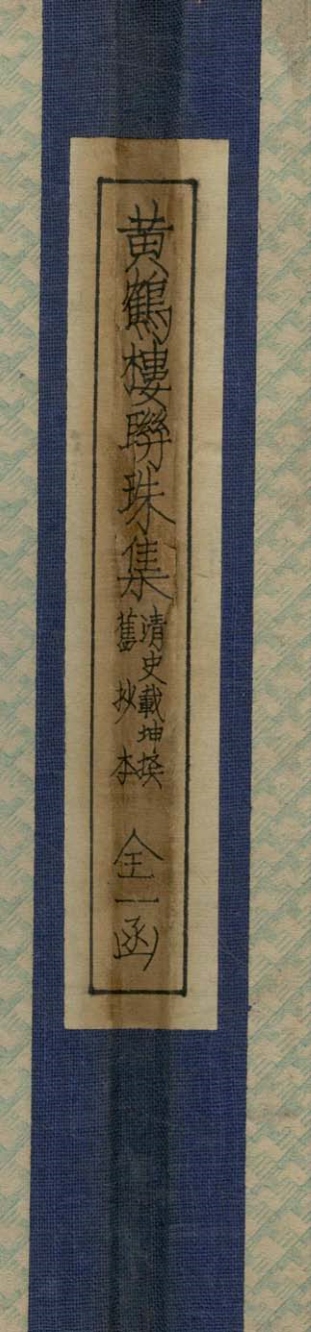 黄鶴樓聨珠集
清史載坤撰
舊抄本
全一函